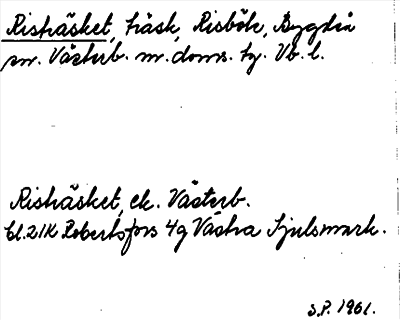 Risträsket, träsk, Risböle, Bygdeå
sn. Västerb. m. doms. tg. Vb. l.
Risträsket, ek. Västerb.
bl. 21K Robertsfors 4g Västra Sjulsmark.
S.P. 1961.